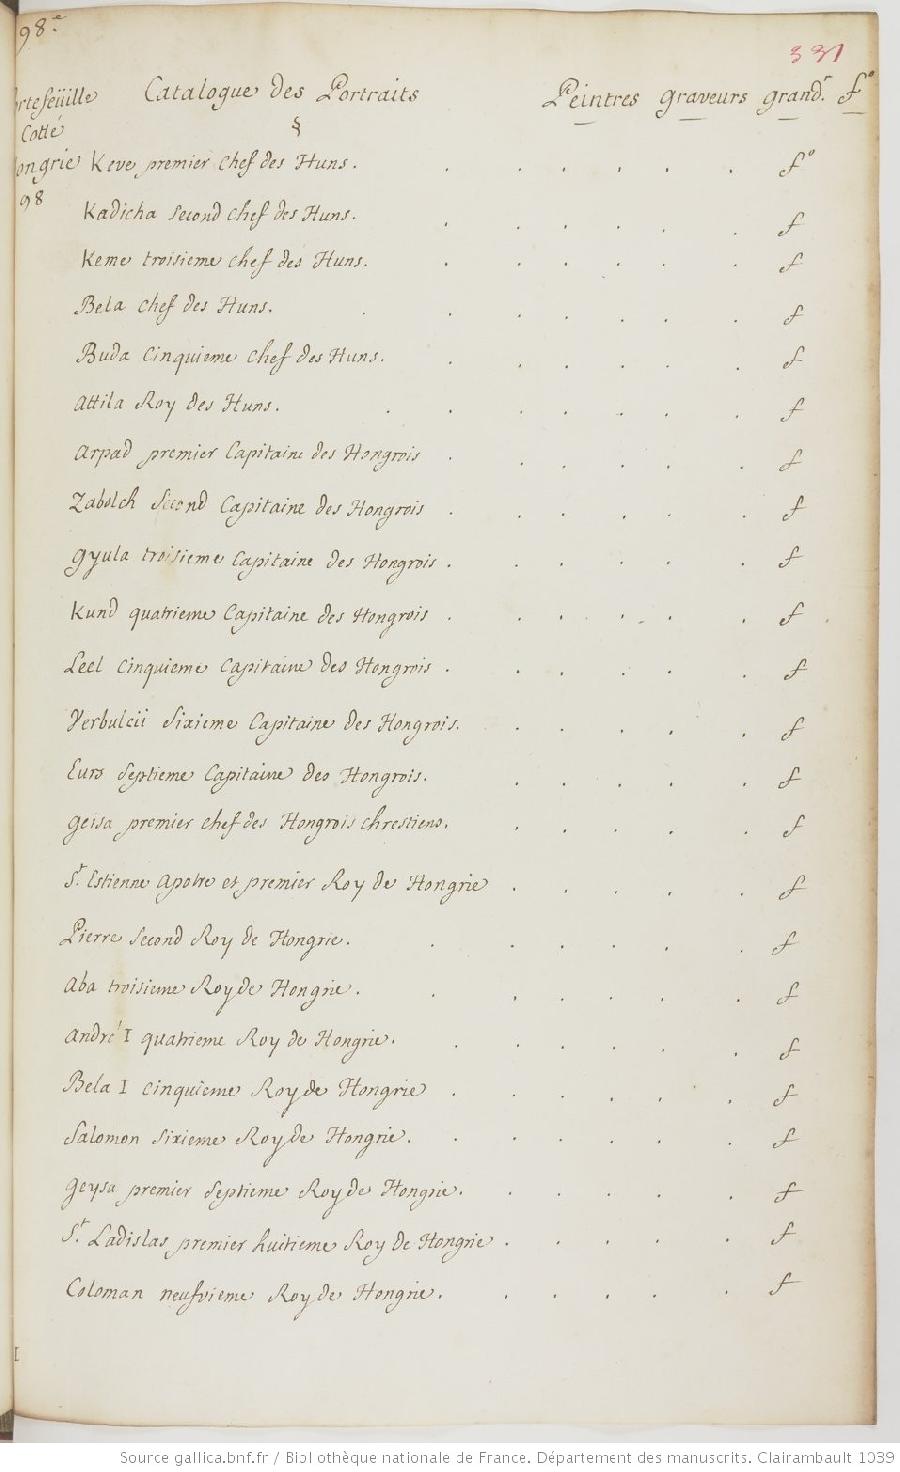 98.e
331
rtefeüille Catalogue des Portraits Peintres graveurs grandr. fo
Cotté §
ongrie Keve premier chef des Huns. . . . . . . fo
98
Kadicha second chef des Huns. . . . . . . f
Keme troisieme chef des Huns. . . . . . . f
Bela chef des Huns. . . . . . . . f
Buda Cinquieme chef des Huns. . . . . . . f
Attila Roy des Huns. . . . . . . . f
Arpad premier Capitaine des Hongrois . . . . . . f
Zabolch second Capitaine des Hongrois . . . . . . f
Gyula troisieme Capitaine des Hongrois . . . . . . f
Kund quatrieme Capitaine des Hongrois . . . . . . f
Leel cinquieme Capitaine des Hongrois . . . . . . f
Verbulcü sixieme Capitaine des Hongrois. . . . . . f
Eurs septieme Capitaine des Hongrois. . . . . . f
Geisa premier chef des Hongrois chrestiens. . . . . . f
St. Estienne Apotre et premier Roy de Hongrie . . . . . f
Pierre second Roy de Hongrie. . . . . . . f
Aba troisieme Roy de Hongrie. . . . . . . f
André I quatrieme Roy de Hongrie. . . . . . . f
Bela I cinquieme Roy de Hongrie . . . . . . f
Salomon sixieme Roy de Hongrie. . . . . . . f
Geysa premier septieme Roy de Hongrie. . . . . . f
St. Ladislas premier huitieme Roy de Hongrie . . . . . f
Coloman neufvieme Roy de Hongrie. . . . . . f
Source gallica.bnf.fr / Bibliothèque nationale de France. Département des manuscrits. Clairambault 1039